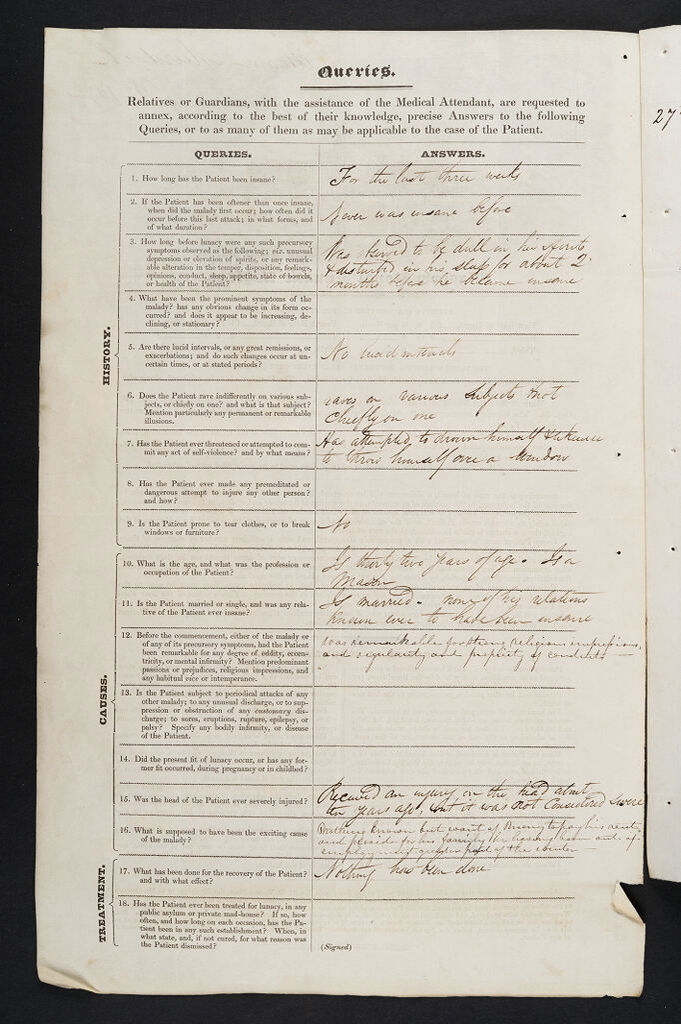 Queries.
Relatives or Guardians, with the assistance of the Medical Attendant, are requested to
annex, according to the best of their knowledge, precise Answers to the following
Queries, or to as many of them as may be applicable to the case of the Patient.
27
QUERIES.
ANSWERS.
HISTORY.
1. How long has the Patient been insane?
For the last three weeks
2. If the Patient has been oftener than once insane,
when did the malady first occur; how often did it
occur before this last attack; in what forms, and
of what duration?
Never was insane before
3. How long before lunacy were any such precursory
symptoms observed as the following; viz. unusual
depression or elevation of spirits, or any remark-
able alteration in the temper, disposition, feelings,
opinions, conduct, sleep, appetite, state of bowels,
or health of the Patient?
Was observed to be dull in his spirits
& disturbed in his sleep for about 2
months before he became insane
4. What have been the prominent symptoms of the
malady? has any obvious change in its form oc-
curred? and does it appear to be increasing, de-
clining, or stationary?
5. Are there lucid intervals, or any great remissions, or
exacerbations; and do such changes occur at un-
certain times, or at stated periods?
No lucid intervals
6. Does the Patient rave indifferently on various sub-
jects, or chiefly on one? and what is that subject?
Mention particularly any permanent or remarkable
illusions.
raves on various subjects & not
Chiefly on one
7. Has the Patient ever threatened or attempted to com-
mit any act of self-violence? and by what means?
Has attempted to drown himself &
to throw himself over a window
8. Has the Patient ever made any premeditated or
dangerous attempt to injure any other person?
and how?
9. Is the Patient prone to tear clothes, or to break
windows or furniture?
No
CAUSES.
10. What is the age, and what was the profession or
occupation of the Patient?
Is thirty two years of age. Is a
Mason
11. Is the Patient married or single, and was any rela-
tive of the Patient ever insane?
Is married - none of his relations
known ever to have been insane
12. Before the commencement, either of the malady or
of any of its precursory symptoms, had the Patient
been remarkable for any degree of oddity, eccen-
tricity, or mental infirmity? Mention predominant
passions or prejudices, religious impressions, and
any habitual vice or intemperance.
was remarkable for strong religious impressions,
and regularity and propriety of conduct —
13. Is the Patient subject to periodical attacks of any
other malady; to any unusual discharge, or to sup-
pression or obstruction of any customary dis-
charge; to sores, eruptions, rupture, epilepsy, or
palsy? Specify any bodily infirmity, or disease
of the Patient.
14. Did the present fit of lunacy occur, or has any for-
mer fit occurred, during pregnancy or in childbed?
15. Was the head of the Patient ever severely injured?
Received an injury on the head about
ten years ago, but it was not Considered Severe
16. What is supposed to have been the exciting cause
of the malady?
Nothing known but want of Money to pay his rent,
and provide for his family he having been out of
employment greater part of the winter
TREATMENT.
17. What has been done for the recovery of the Patient?
and with what effect?
Nothing has been done
18. Has the Patient ever been treated for lunacy, in any
public asylum or private mad-house? If so, how
often, and how long on each occasion, has the Pa-
tient been in any such establishment? When, in
what state, and, if not cured, for what reason was
the Patient dismissed?
(Signed)